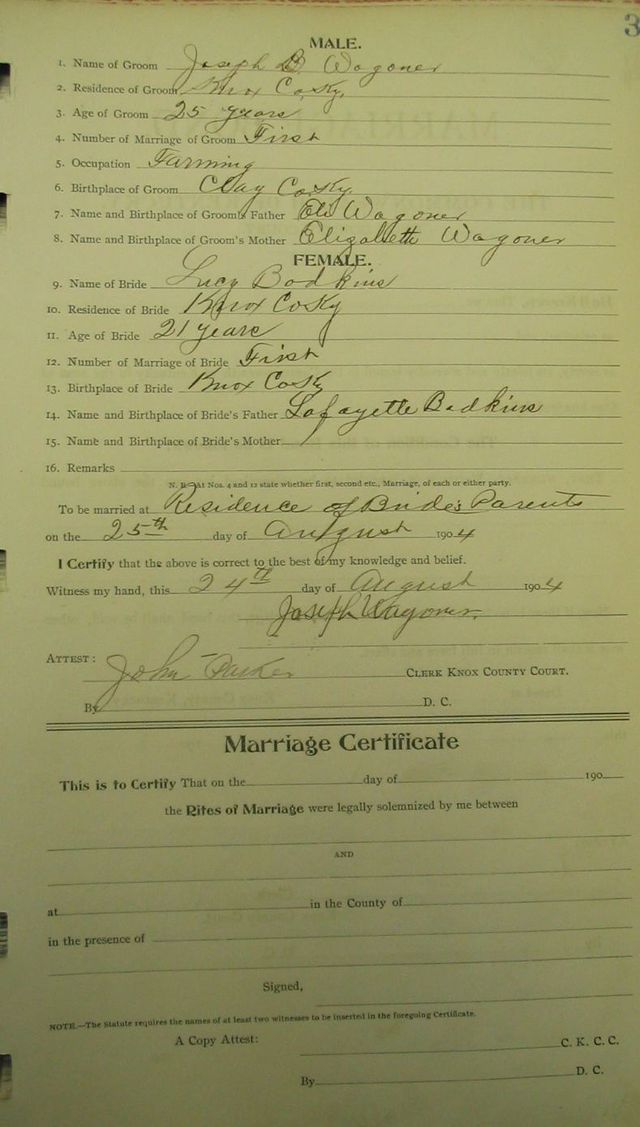 3
MALE.
1. Name of Groom Joseph B Wagoner
2. Residence of Groom Knox Co Ky,
3. Age of Groom 25 years
4. Number of Marriage of Groom First
5. Occupation Farming
6. Birthplace of Groom Clay Co Ky
7. Name and Birthplace of Groom's Father Eli Wagoner
8. Name and Birthplace of Groom's Mother Elizabeth Wagoner
FEMALE.
9. Name of Bride Lucy Badkins
10. Residence of Bride Knox Co Ky
11. Age of Bride 21 years
12. Number of Marriage of Bride First
13. Birthplace of Bride Knox Co Ky
14. Name and Birthplace of Bride's Father Lafayette Badkins
15. Name and Birthplace of Bride's Mother
16. Remarks
N. B. At Nos. 4 and 12 state whether first, second etc., Marriage, of each or either party.
To be married at Residence of Bride's Parents
on the 25th day of August 1904
I Certify that the above is correct to the best of my knowledge and belief.
Witness my hand, this 24th day of August 1904
Joseph Wagoner
ATTEST: John Parker CLERK KNOX COUNTY COURT.
By D. C.
Marriage Certificate
This is to Certify That on the day of 190
the Rites of Marriage were legally solemnized by me between
AND
at in the County of
in the presence of
Signed,
NOTE.—The Statute requires the names of at least two witnesses to be inserted in the foregoing Certificate.
A Copy Attest: C. K. C. C.
By D. C.